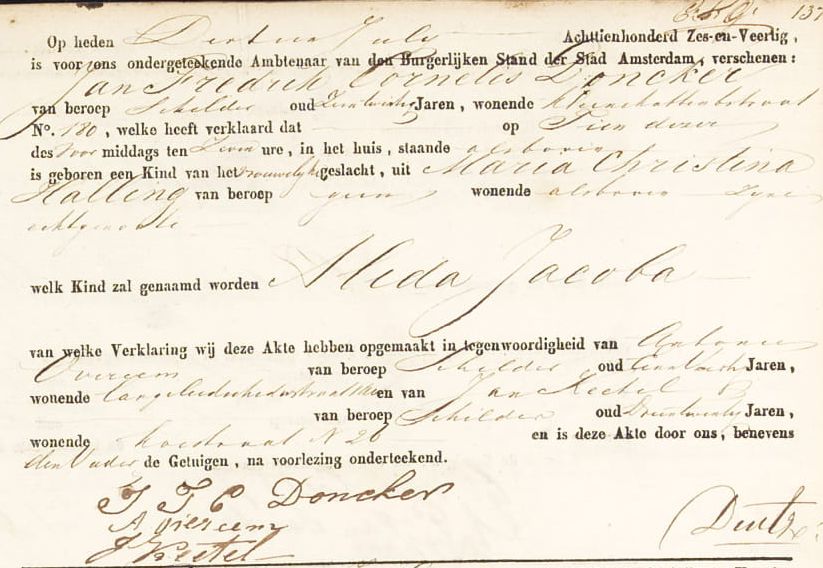 137
Op heden Dertien July Achttienhonderd Zes-en-Veertig,
is voor ons ondergeteekende Ambtenaar van den Burgerlijken Stand der Stad Amsterdam, verschenen:
Jan Fredrik Cornelis Doncker
van beroep Schilder oud Jaren, wonende
N°. 180, welke heeft verklaard dat op Tien dezer
des Voor middags ten Zeven ure, in het huis, staande alsboven
is geboren een Kind van het vrouwelijke geslacht, uit Maria Christina
Halling van beroep geen wonende alsboven zyne
echtgenoote
welk Kind zal genaamd worden Alida Jacoba
van welke Verklaring wij deze Akte hebben opgemaakt in tegenwoordigheid van Antonie
Overeem van beroep Schilder oud Jaren,
wonende en van Jan Keetel
van beroep Schilder oud Jaren,
wonende N 26 en is deze Akte door ons, benevens
den Vader de Getuigen, na voorlezing onderteekend.
J F C Doncker
A Overeem
J Keetel